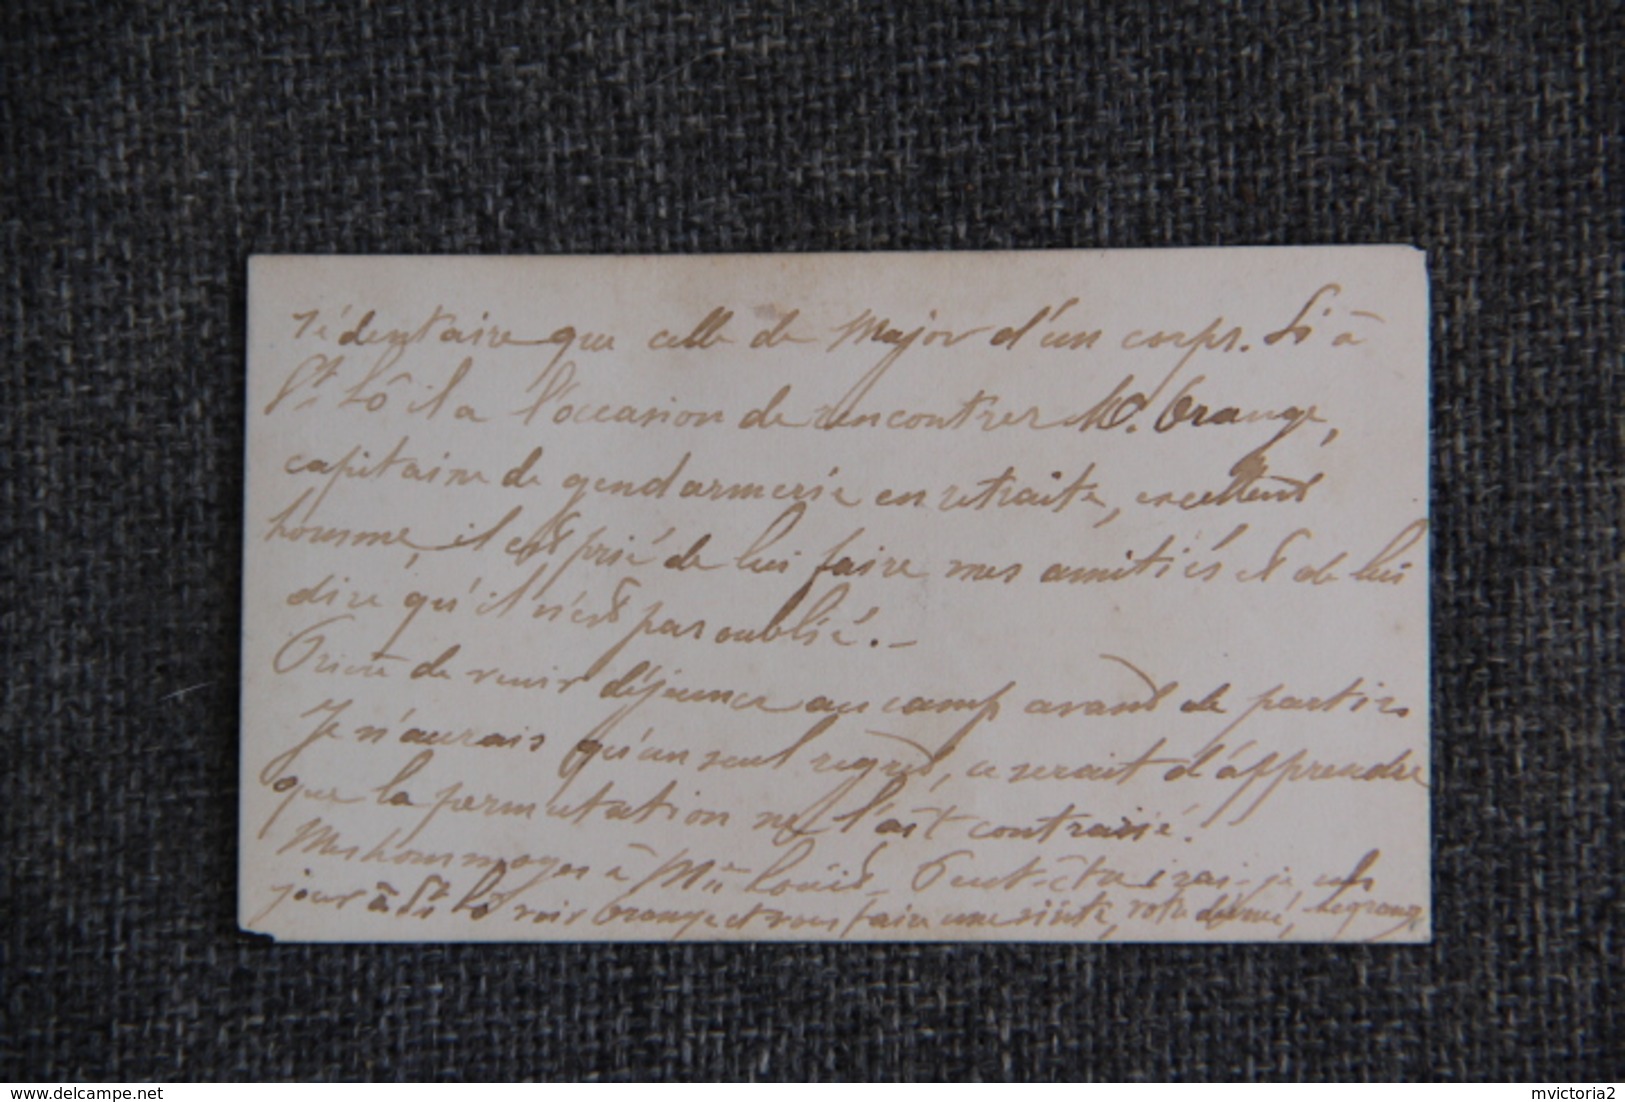 sédentaire que celle de Major d'un corps. Si à
St Lô il a l'occasion de rencontrer M. Orange,
capitaine de gendarmerie en retraite, excellent
homme, il est prié de lui faire mes amitiés et de lui
dire qu'il n'est pas oublié. –
Prière de venir déjeuner au camp avant de partir
Je n'aurais qu'un seul regret, ce serait d'apprendre
que la permutation ne l'ait contrarié.
Mes hommages à Mme Louis – Peut-être irai-je un
jour à St Lô voir Orange et vous faire une visite, votre dévoué,
www.delcampe.net
mvictoria2